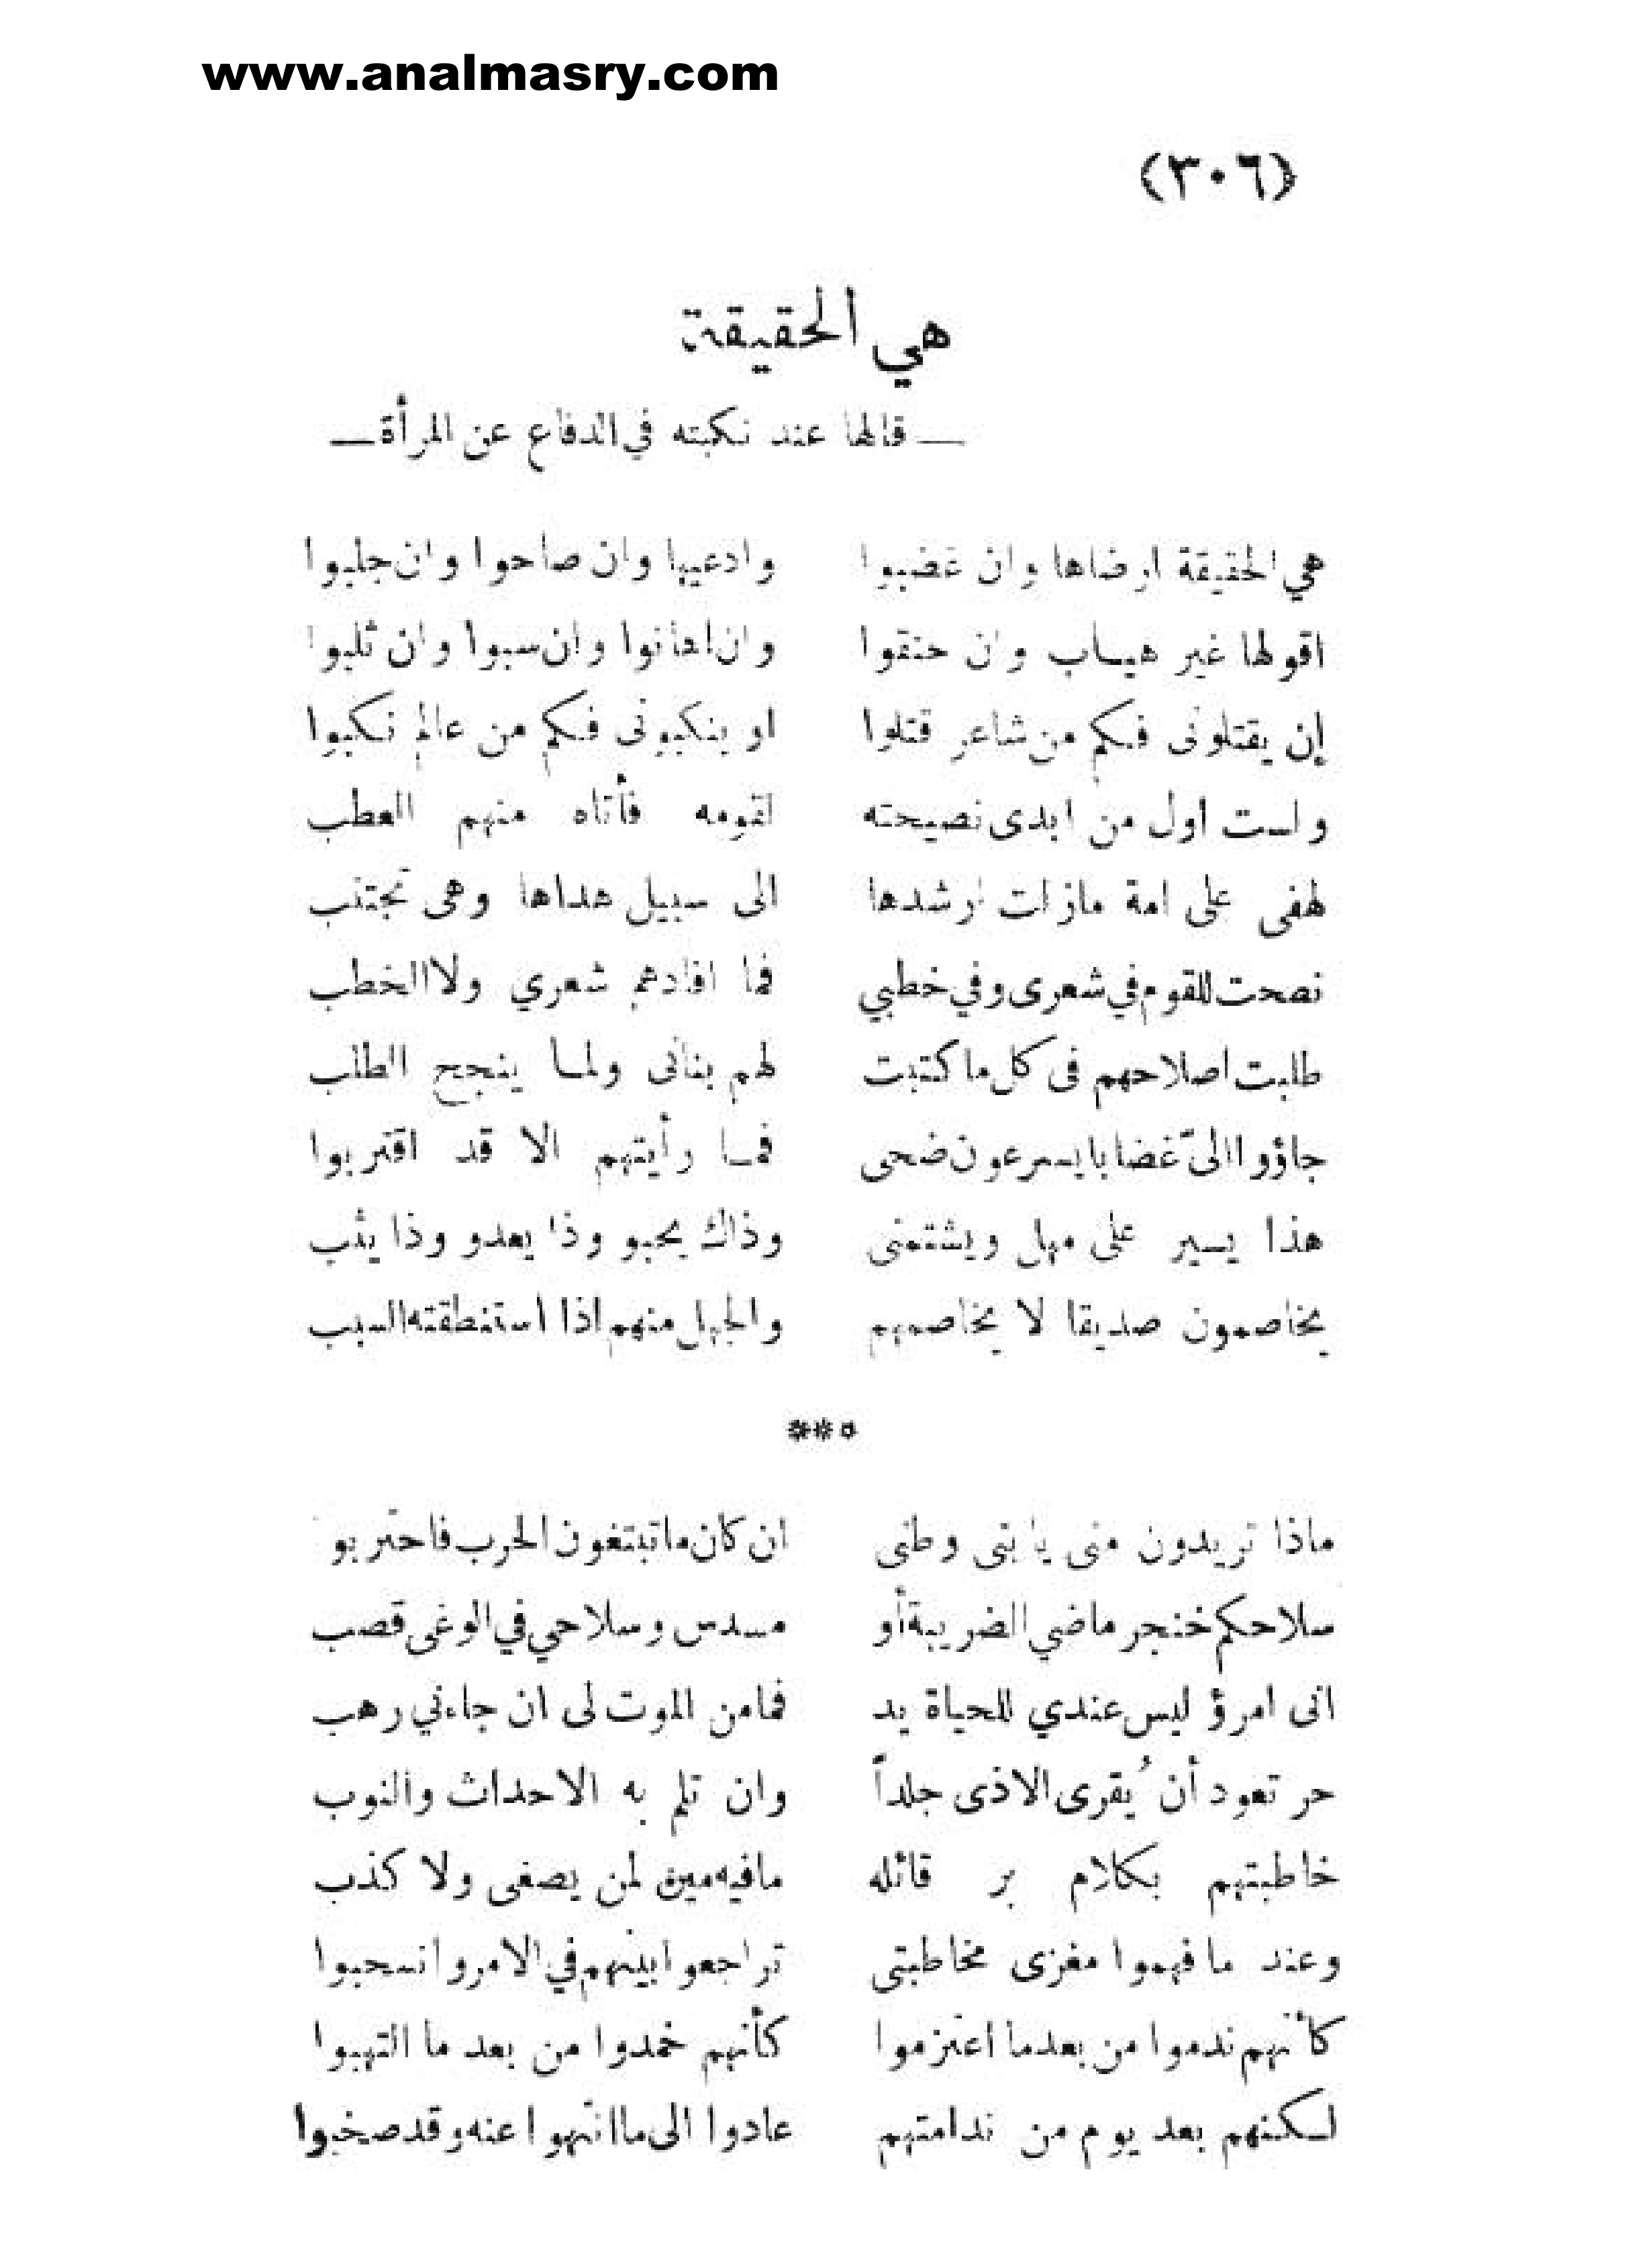 www.analmasry.com
(٣٠٦)
هي الحقيقة
— قالها عند نكبته في الدفاع عن المرأة —
هي الحقيقة ارضاها وان غضبوا وادعيها وان صاحوا وان جلبوا
اقولها غير هياب وان حنقوا وان اهانوا وان سبوا وان ثلبوا
إن يقتلونى فكم من شاعر قتلوا او ينكبونى فكم من عالم نكبوا
ولست اول من ابدى نصيحته لقومه فأتاه منهم العطب
لهفى على امة مازلت ارشدها الى سبيل هداها وهى تجتنب
نصحت للقوم في شعرى وفي خطبي فما افادهم شعري ولا الخطب
طلبت اصلاحهم فى كل ما كتبت لهم بنانى ولما ينجح الطلب
جاؤوا الىّ غضابا يسرعون ضحى فما رأيتهم الا قد اقتربوا
هذا يسير على مهل ويشتمنى وذاك يحبو وذا يعدو وذا يثب
يخاصمون صديقا لا يخاصمهم والجهل منهم اذا استنطقته السبب
***
ماذا تريدون منى يا بنى وطنى ان كان ما تبتغون الحرب فاحتربوا
سلاحكم خنجر ماضي الضريبة أو مسدس وسلاحي في الوغى قصب
انى امرؤ ليس عندي للحياة يد فما من الموت لى ان جاءني رهب
حر تعود أن يُقرى الاذى جلداً وان تلم به الاحداث والنوب
خاطبتهم بكلام بر قائله ما فيه مين لمن يصغى ولا كذب
وعند ما فهموا مغزى مخاطبتى تراجعوا بينهم في الامر وانسحبوا
كأنهم ندموا من بعدما اعتزموا كأنهم خمدوا من بعد ما التهبوا
لكنهم بعد يوم من ندامتهم عادوا الى ما انتهوا عنه وقد صخبوا